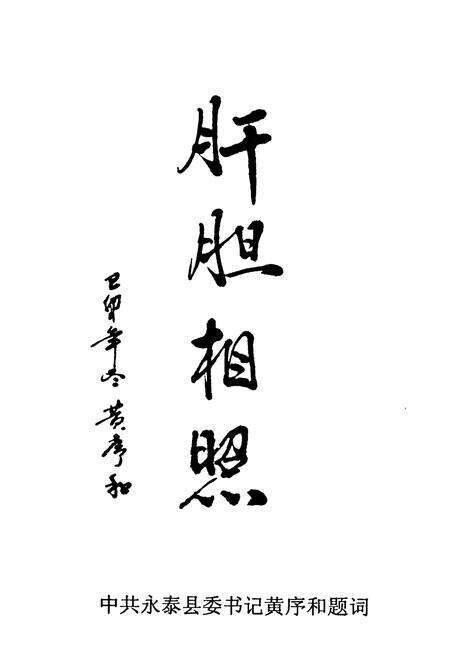 肝胆相照
己卯年冬 黄序和
中共永泰县委书记黄序和题词